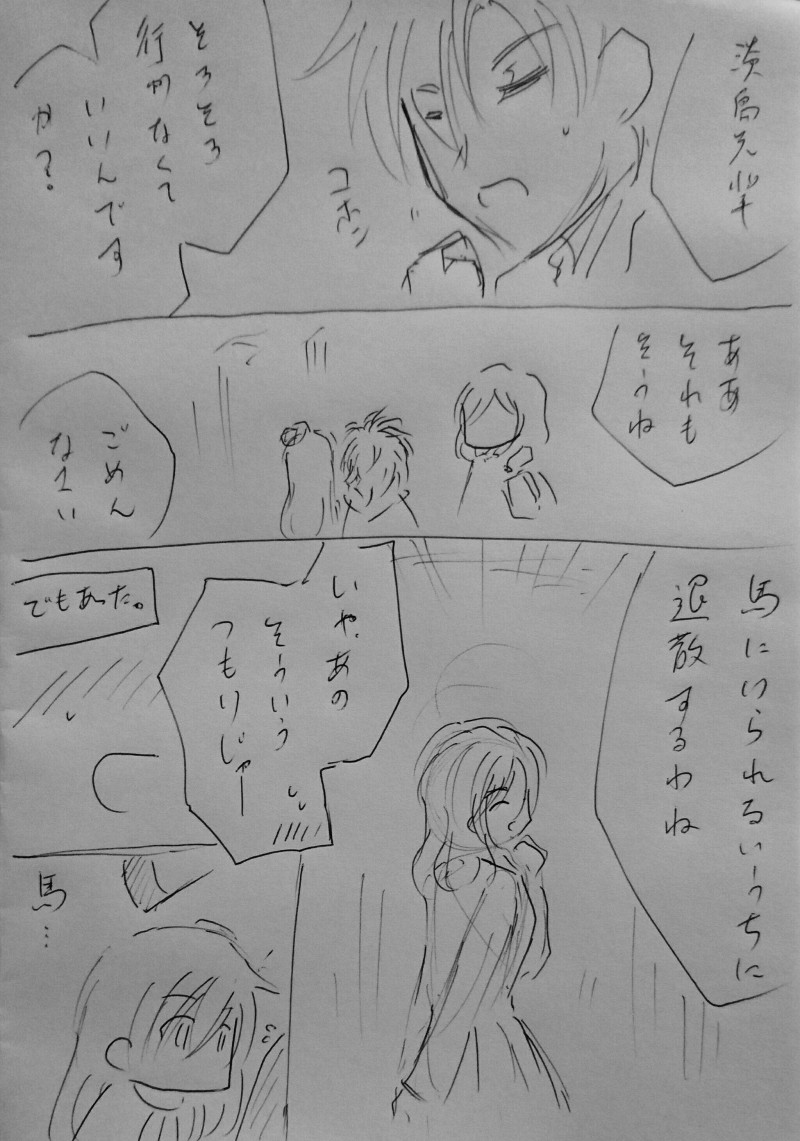 茨島先輩
そろそろ
行かなくて
いいんです
か?
コホン
ああ
それも
そうね
ごめん
なさい
馬にけられるいーうちに
退散するわね
いや、あの
そういう
つもりじゃー
でもあった。
馬…